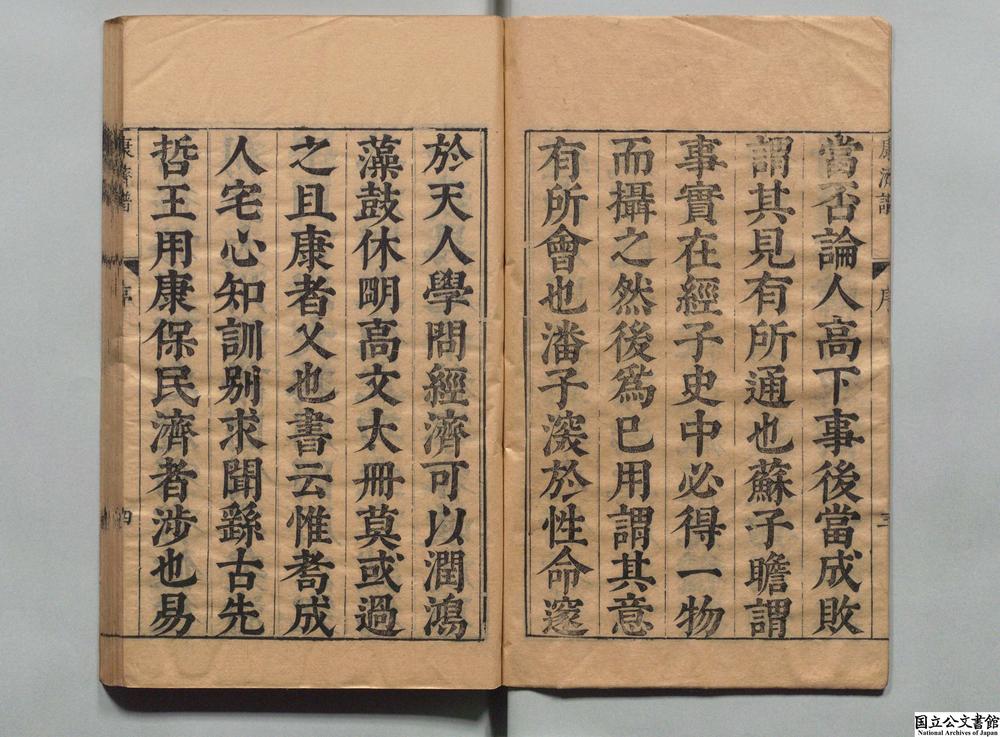 康濟譜
序
三
當否論人高下事後當成敗
謂其見有所通也蘇子瞻謂
事實在經子史中必得一物
而攝之然後爲已用謂其意
有所會也潘子深於性命邃
於天人學問經濟可以潤鴻
藻鼓休朙高文大冊莫或過
之且康者乂也書云惟耉成
人宅心知訓別求聞繇古先
哲王用康保民濟者涉也易
康濟譜
序
四
国立公文書館
National Archives of Japan